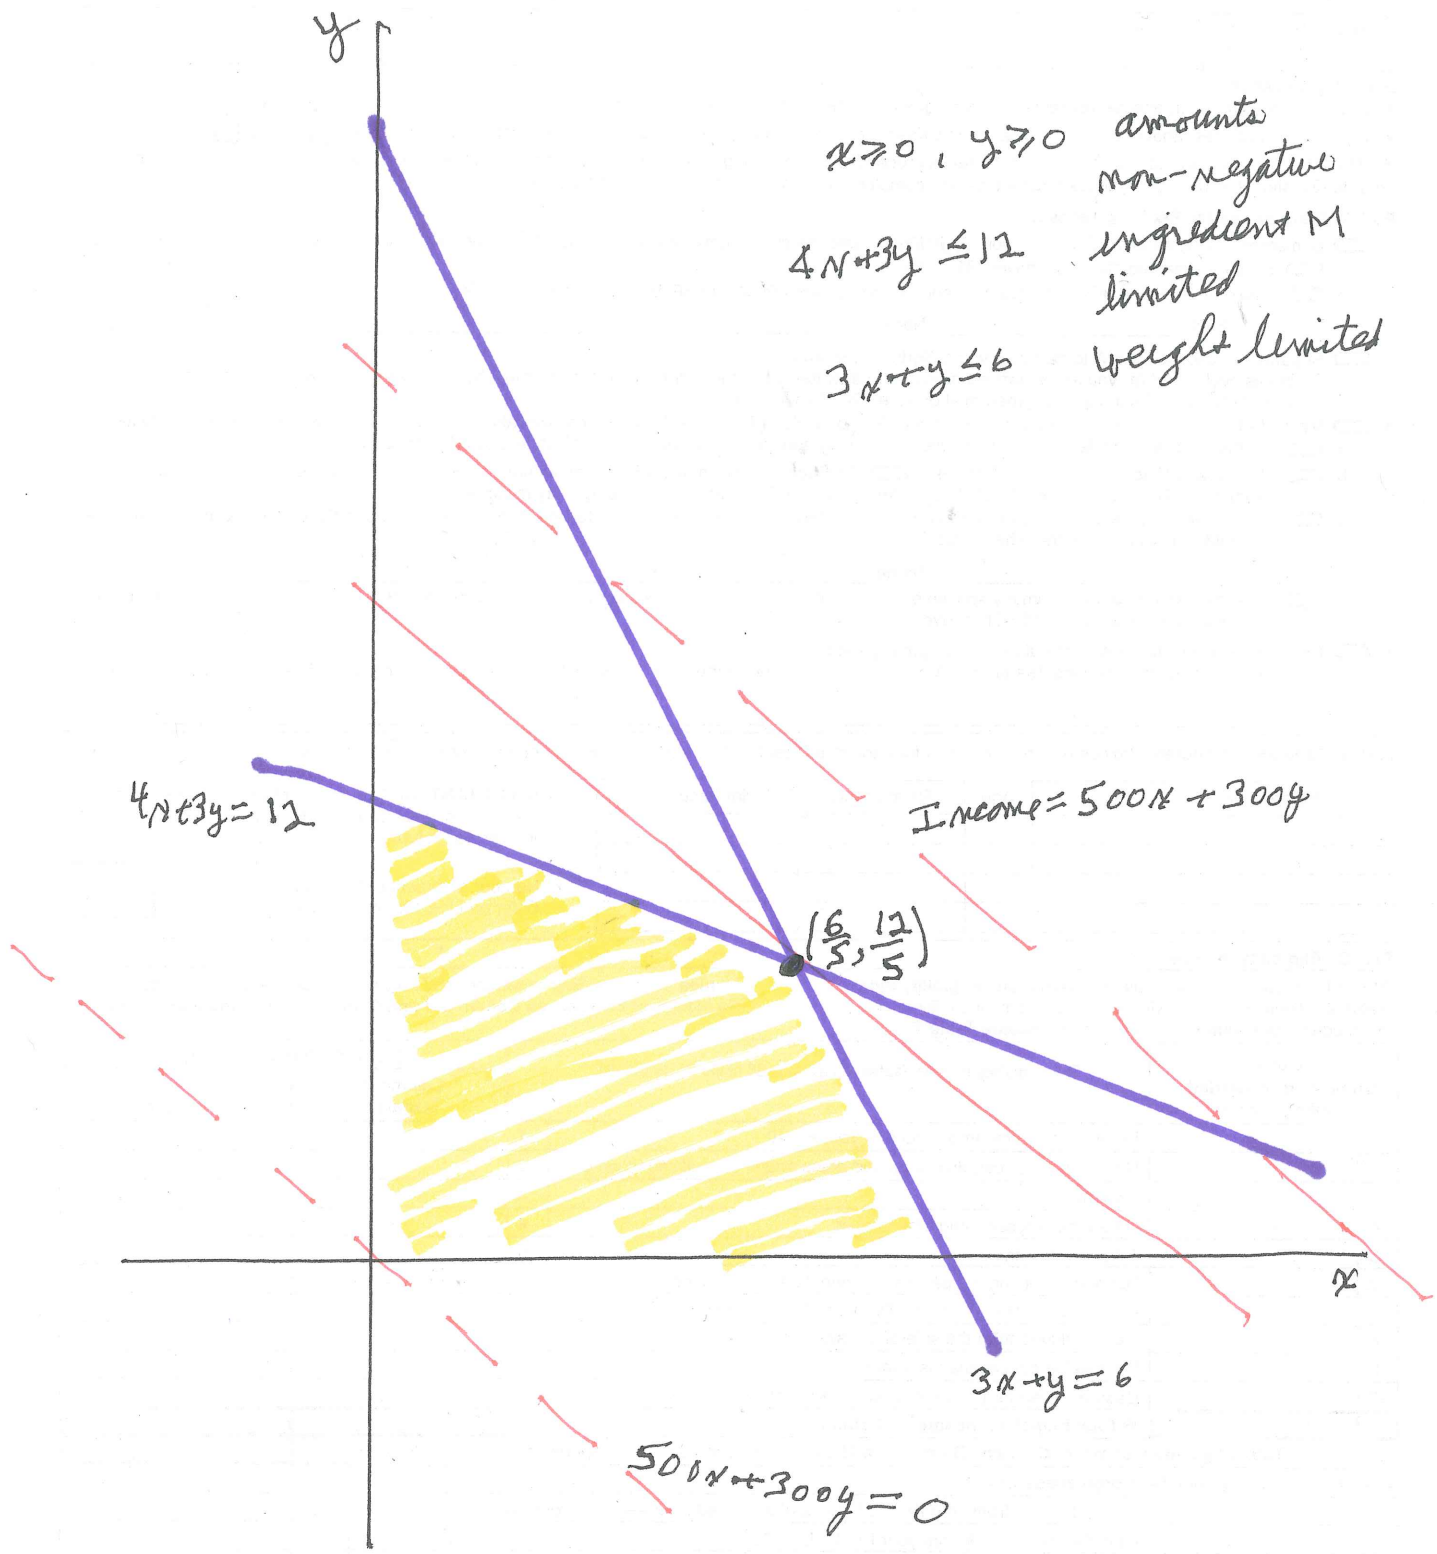 y
x≥0, y≥0 amounts
non-negative
4x+3y ≤12 ingredient M
limited
3x+y≤6 weight limited
4x+3y=12
Income=500x+300y
(6/5, 12/5)
x
3x+y=6
500x+300y=0